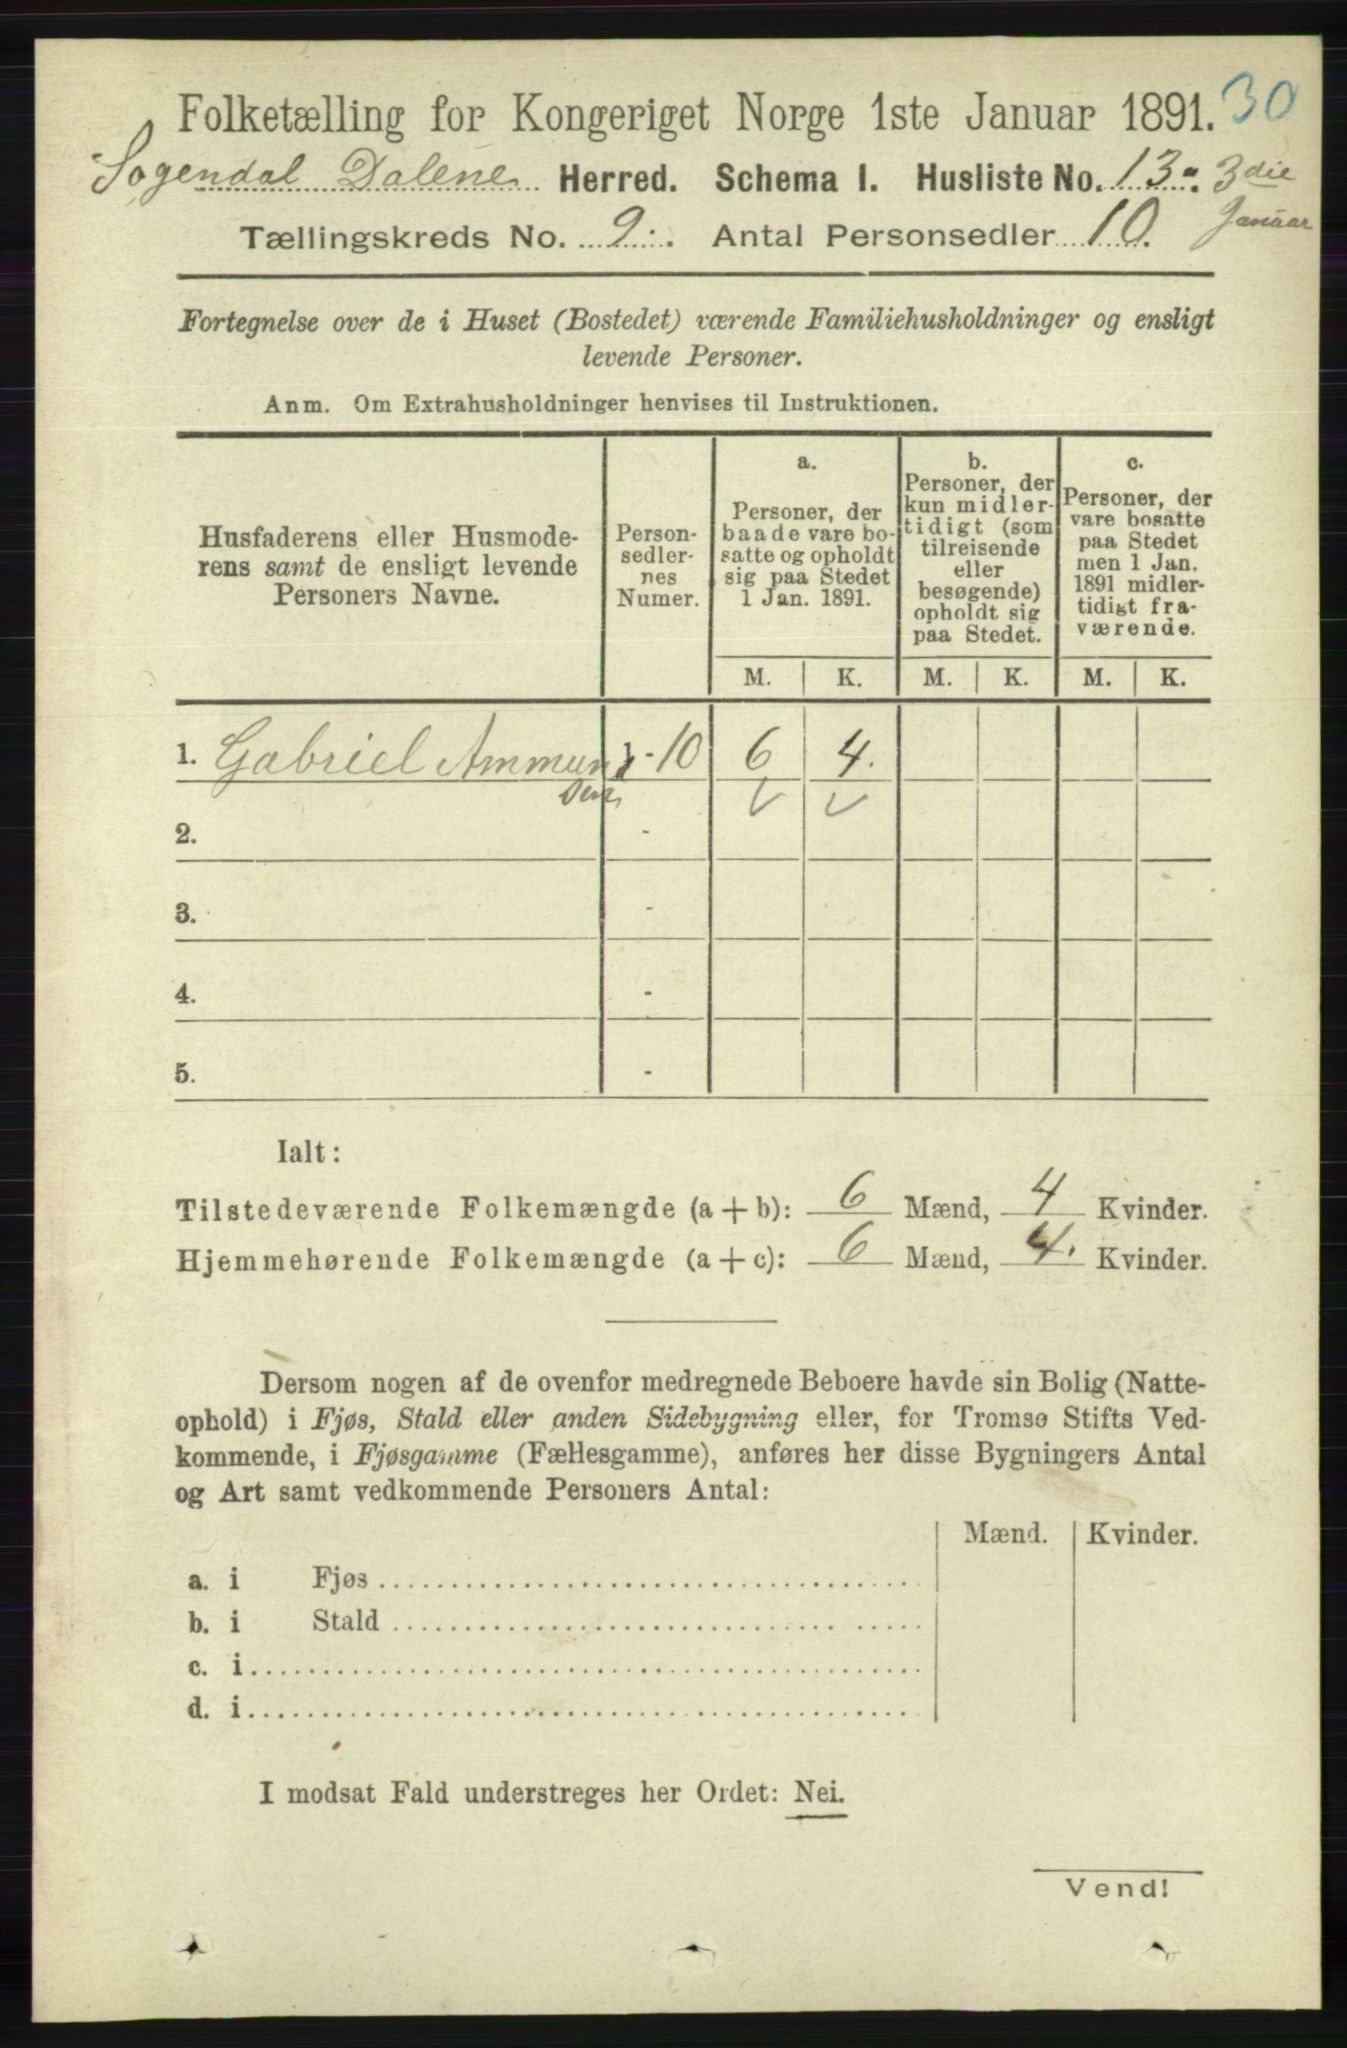 30
Folketælling for Kongeriget Norge 1ste Januar 1891.
Sogendal Dalene Herred. Schema 1. Husliste No. 13. 3die
Januar
Tællingskreds No. 9. Antal Personsedler 10.
Fortegnelse over de i Huset (Bostedet) værende Familiehusholdninger og ensligt
levende Personer.
Anm. Om Extrahusholdninger henvises til Instruktionen.
Husfaderens eller Husmode-
rens samt de ensligt levende
Personers Navne.
Person-
sedler-
nes
Numer.
a.
Personer, der
baade vare bo-
satte og opholdt
sig paa Stedet
1 Jan. 1891.
b.
Personer, der
kun midler-
tidigt (som
tilreisende
eller
besøgende)
opholdt sig
paa Stedet.
c.
Personer, der
vare bosatte
paa Stedet
men 1 Jan.
1891 midler-
tidigt fra-
værende.
M. K. M. K. M. K.
1. Gabriel Ammund 1-10 6 4.
sen
2. -
3. -
4. -
5. -
Ialt:
Tilstedeværende Folkemængde (a + b): 6 Mænd, 4 Kvinder.
Hjemmehørende Folkemængde (a + c): 6 Mænd, 4. Kvinder.
Dersom nogen af de ovenfor medregnede Beboere havde sin Bolig (Natte-
ophold) i Fjøs, Stald eller anden Sidebygning eller, for Tromsø Stifts Ved-
kommende, i Fjøsgamme (Fællesgamme), anføres her disse Bygningers Antal
og Art samt vedkommende Personers Antal:
Mænd. Kvinder.
a. i Fjøs
b. i Stald
c. i
d. i
I modsat Fald understreges her Ordet: Nei.
Vend!